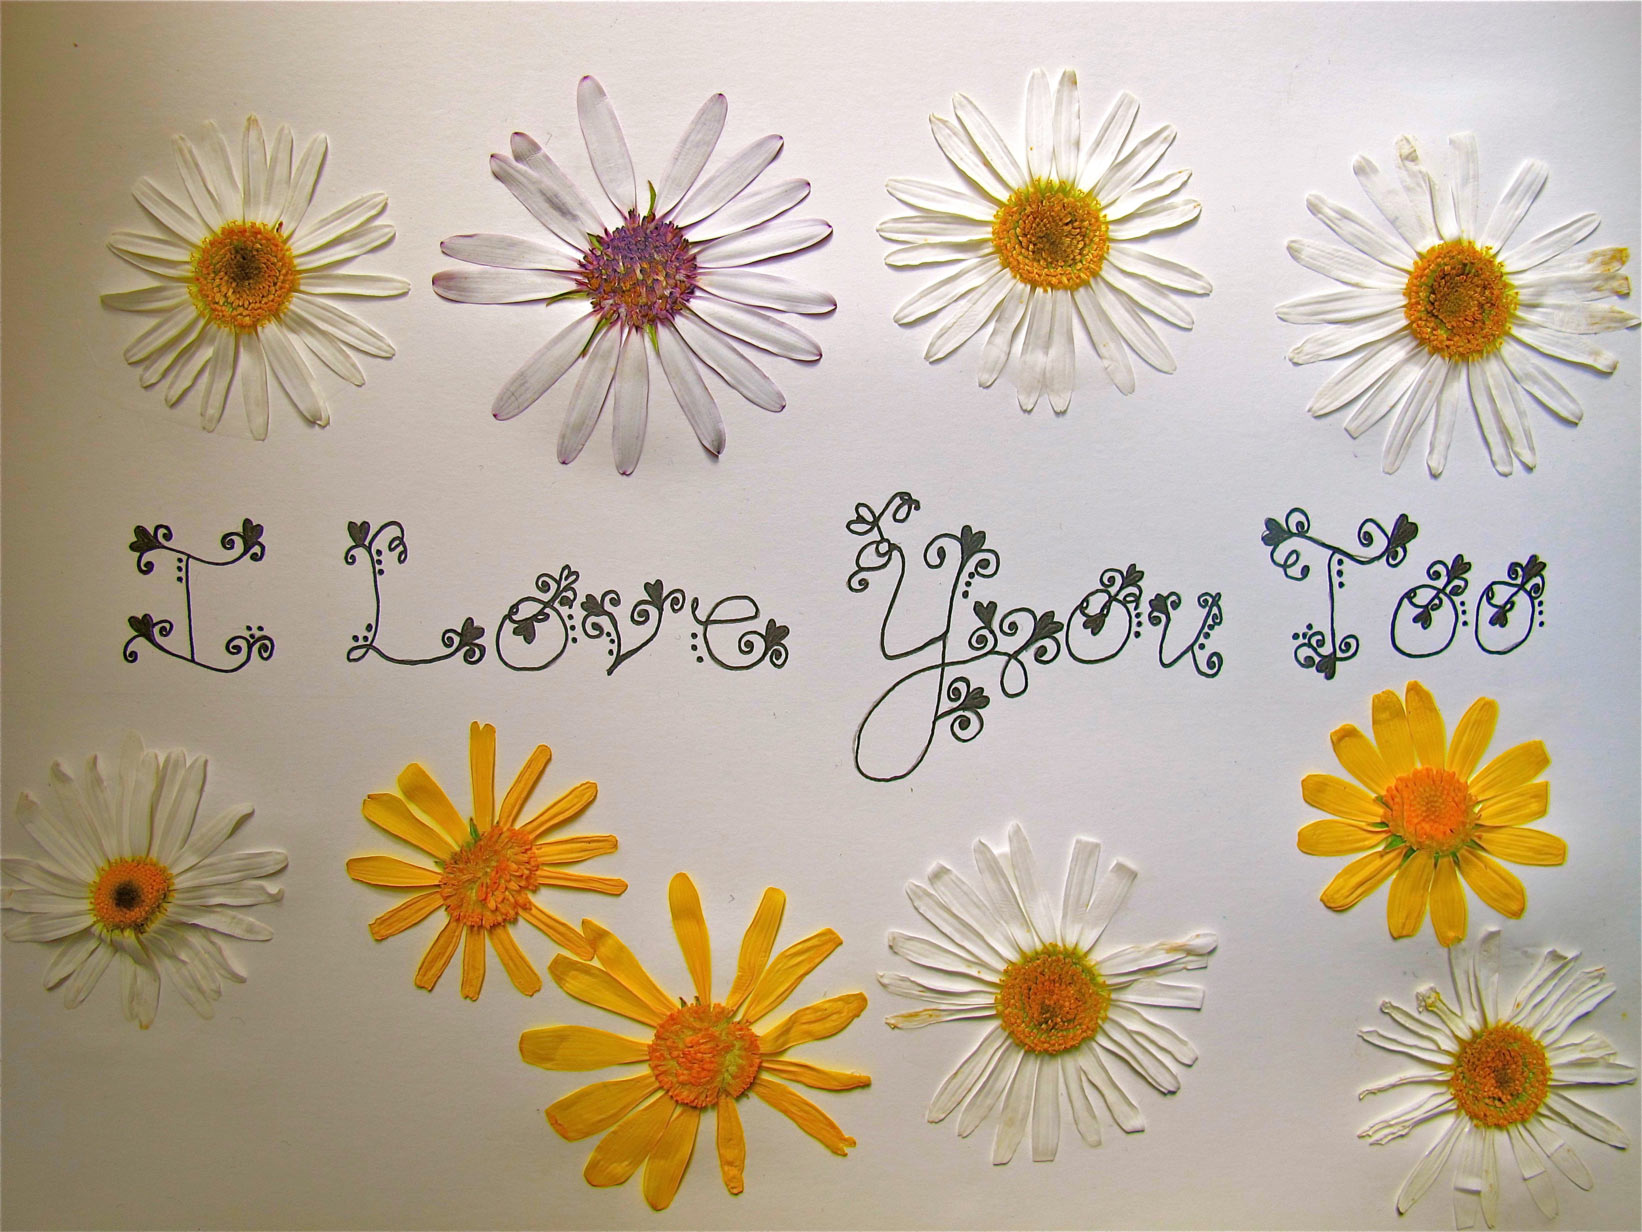 I Love You Too